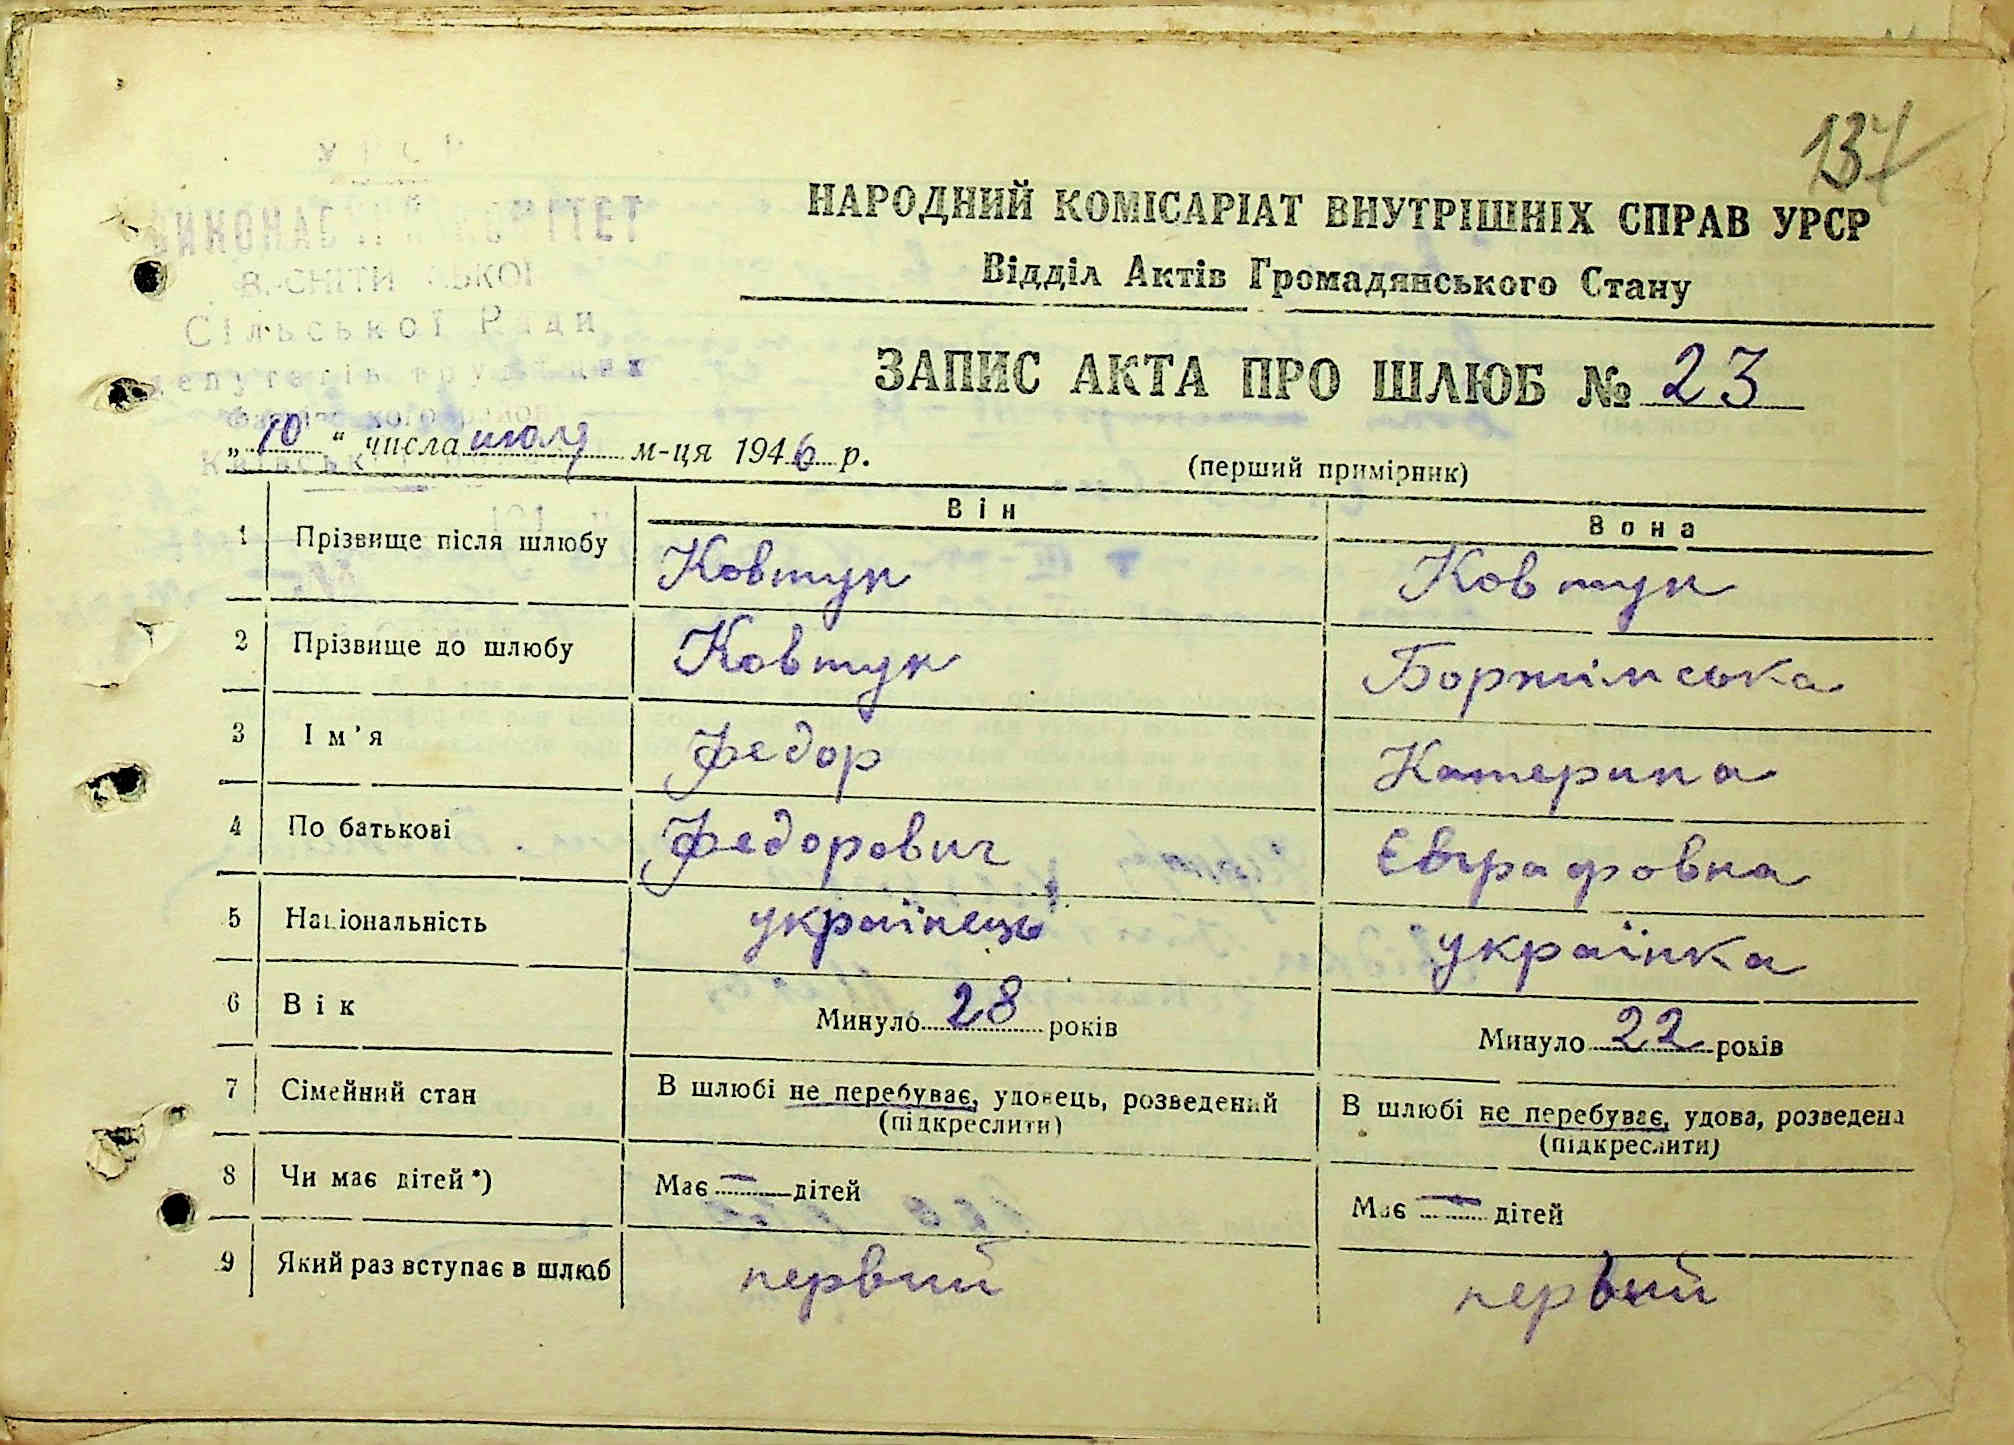 137
УРСР
ВИКОНАВЧИЙ КОМІТЕТ
В.-СНІТИНСЬКОЇ
Сільської Ради
депутатів трудящих
НАРОДНИЙ КОМІСАРІАТ ВНУТРІШНІХ СПРАВ УРСР
Відділ Актів Громадянського Стану
ЗАПИС АКТА ПРО ШЛЮБ № 23
„10“ числа июля м-ця 1946 р.
(перший примірник)
Він Вона
1 Прізвище після шлюбу Ковтун Ковтун
2 Прізвище до шлюбу Ковтун
3 Ім’я Федор Катерина
4 По батькові Федорович Євграфовна
5 Національність українець українка
6 Вік Минуло 28 років Минуло 22 років
7 Сімейний стан В шлюбі не перебуває, удовець, розведений В шлюбі не перебуває, удова, розведена
(підкреслити) (підкреслити)
8 Чи має дітей*) Має — дітей Має — дітей
9 Який раз вступає в шлюб первий первий